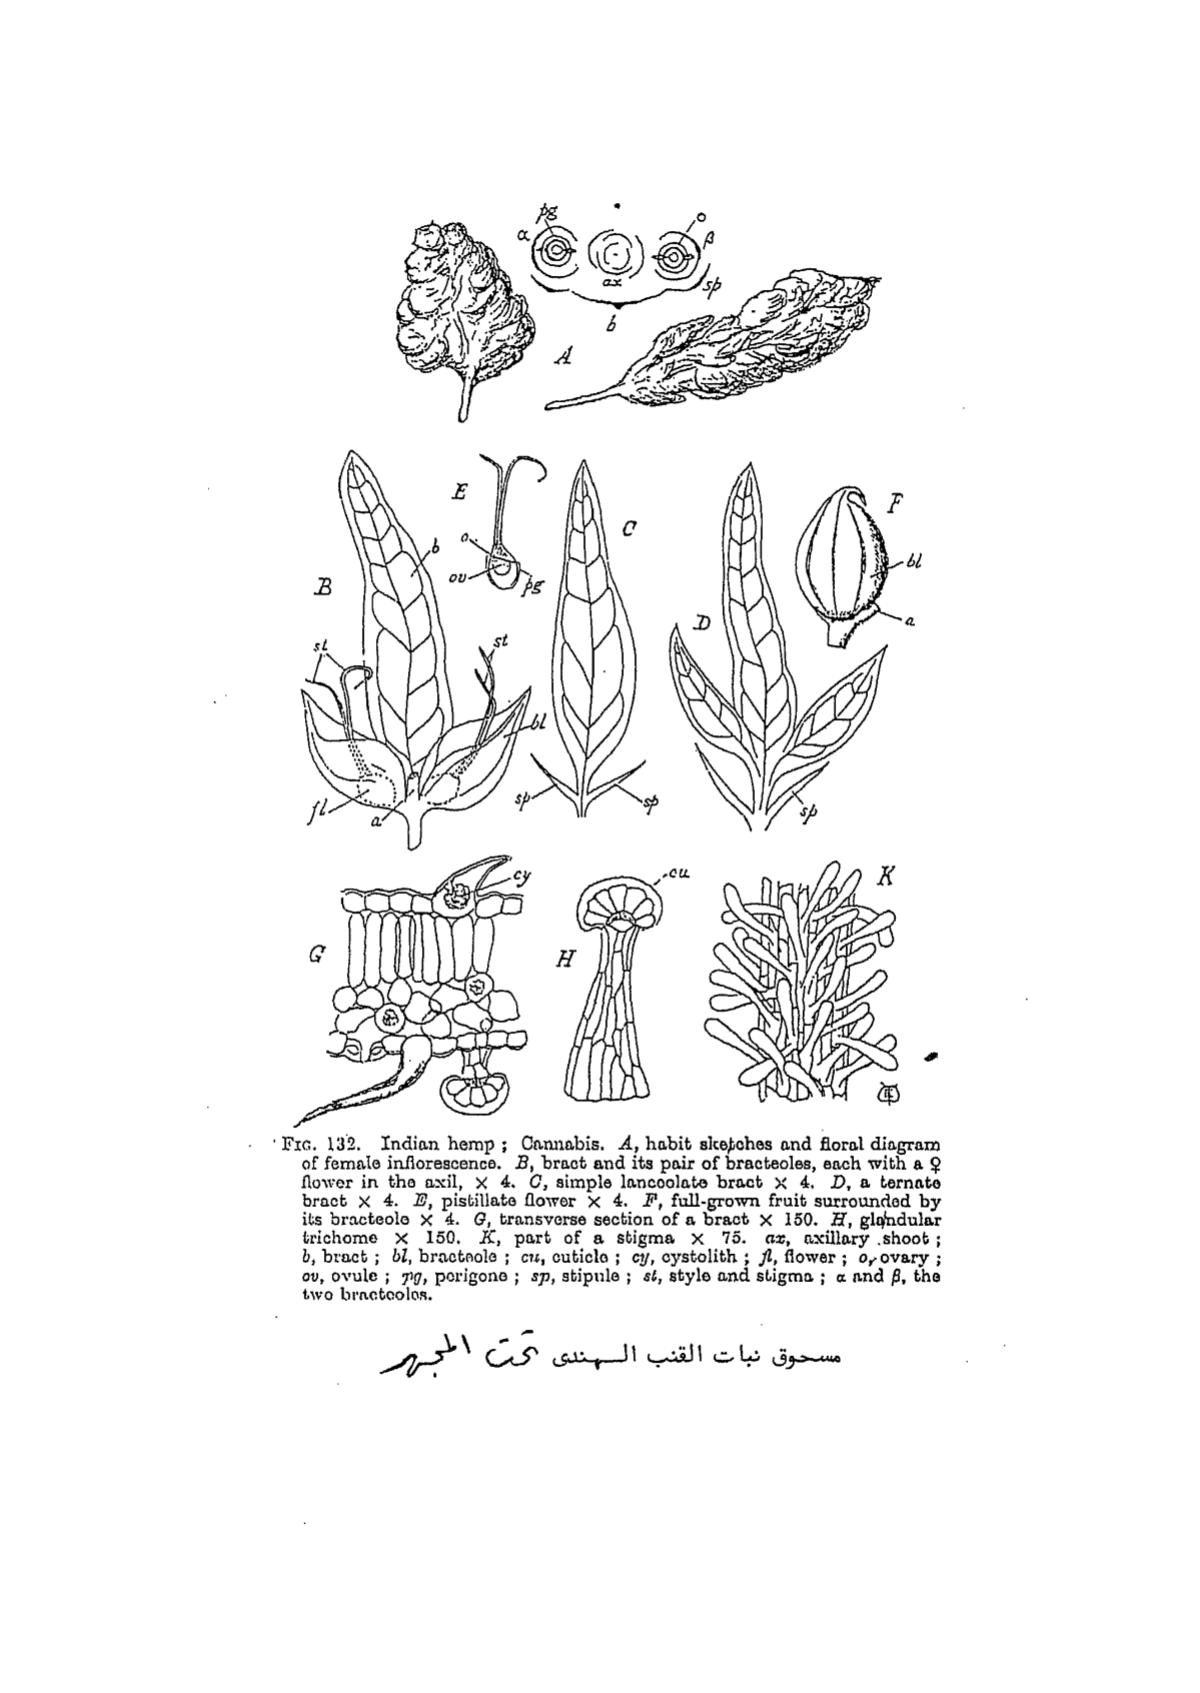 pg
o
α
β
ax
sp
b
A
E
C
F
o
b
ov
pg
bl
B
a
D
st
st
bl
sp
sp
sp
fl
a
cy
cu
K
G
H
FIG. 132. Indian hemp ; Cannabis. A, habit sketches and floral diagram
of female inflorescence. B, bract and its pair of bracteoles, each with a ♀
flower in the axil, × 4. C, simple lanceolate bract × 4. D, a ternate
bract × 4. E, pistillate flower × 4. F, full-grown fruit surrounded by
its bracteole × 4. G, transverse section of a bract × 150. H, glandular
trichome × 150. K, part of a stigma × 75. ax, axillary shoot ;
b, bract ; bl, bracteole ; cu, cuticle ; cy, cystolith ; fl, flower ; o, ovary ;
ov, ovule ; pg, perigone ; sp, stipule ; st, style and stigma ; α and β, the
two bracteoles.
مسحوق نبات القنب الهندى تحت المجهر